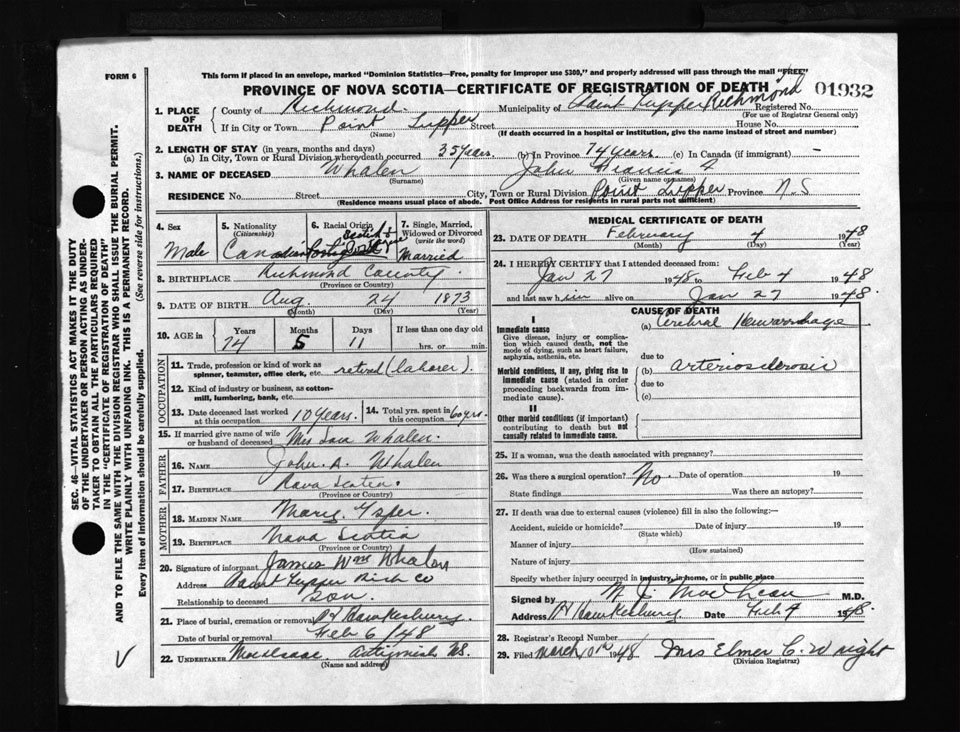 FORM 6
This form if placed in an envelope, marked "Dominion Statistics—Free, penalty for improper use $300," and properly addressed will pass through the mail "FREE"
PROVINCE OF NOVA SCOTIA—CERTIFICATE OF REGISTRATION OF DEATH
01932
1. PLACE OF DEATH
County of Richmond. Municipality of Richmond Registered No.
(For use of Registrar General only)
If in City or Town Point Tupper Street House No.
(Name) (If death occurred in a hospital or institution, give the name instead of street and number)
2. LENGTH OF STAY (in years, months and days)
(a) In City, Town or Rural Division where death occurred 35 years. (b) In Province 74 years. (c) In Canada (if immigrant) —
3. NAME OF DECEASED Whalen John
(Surname) (Given name or names)
RESIDENCE No. Street City, Town or Rural Division Point Tupper Province N.S
(Residence means usual place of abode. Post Office Address for residents in rural parts not sufficient)
4. Sex Male
5. Nationality (Citizenship) Canadian
6. Racial Origin
7. Single, Married, Widowed or Divorced (write the word) Married
8. BIRTHPLACE Richmond County.
(Province or Country)
9. DATE OF BIRTH Aug. 24 1873
(Month) (Day) (Year)
10. AGE in Years Months Days If less than one day old
74 5 11 hrs. or min.
OCCUPATION
11. Trade, profession or kind of work as spinner, teamster, office clerk, etc. retired (laborer).
12. Kind of industry or business, as cotton-mill, lumbering, bank, etc.
13. Date deceased last worked at this occupation 10 years.
14. Total yrs. spent in this occupation 60 yrs.
15. If married give name of wife or husband of deceased Mrs Whalen.
FATHER
16. NAME John. A. Whalen
17. BIRTHPLACE Nova Scotia.
(Province or Country)
MOTHER
18. MAIDEN NAME Mary.
19. BIRTHPLACE Nova Scotia
(Province or Country)
20. Signature of informant James Wm Whalen
Address Point Tupper Rich Co
Relationship to deceased Son.
21. Place of burial, cremation or removal Pt Hawkesbury.
Date of burial or removal Feb 6/48
22. UNDERTAKER MacIsaac. Antigonish NS.
(Name and address)
MEDICAL CERTIFICATE OF DEATH
23. DATE OF DEATH February 4 1948
(Month) (Day) (Year)
24. I HEREBY CERTIFY that I attended deceased from:
Jan 27 1948 to Feb 4 1948
and last saw him alive on Jan 27 1948.
CAUSE OF DEATH
I
Immediate cause
Give disease, injury or complication which caused death, not the mode of dying, such as heart failure, asphyxia, asthenia, etc.
(a) Cerebral Hemorrhage
due to
Morbid conditions, if any, giving rise to immediate cause (stated in order proceeding backwards from immediate cause).
(b) Arteriosclerosis
due to
(c)
II
Other morbid conditions (if important) contributing to death but not causally related to immediate cause.
25. If a woman, was the death associated with pregnancy?
26. Was there a surgical operation? No. Date of operation 19
State findings Was there an autopsy?
27. If death was due to external causes (violence) fill in also the following:—
Accident, suicide or homicide? Date of injury 19
(State which)
Manner of injury
(How sustained)
Nature of injury
Specify whether injury occurred in industry, in home, or in public place
Signed by MacLean M.D.
Address Pt Hawkesbury Date Feb 4 1948.
28. Registrar's Record Number
29. Filed March 10th 1948 Mrs Elmer C. Wright
(Division Registrar)
SEC. 46—VITAL STATISTICS ACT MAKES IT THE DUTY
OF THE UNDERTAKER OR PERSON ACTING AS UNDER-
TAKER TO OBTAIN ALL THE PARTICULARS REQUIRED
IN THE "CERTIFICATE OF REGISTRATION OF DEATH"
AND TO FILE THE SAME WITH THE DIVISION REGISTRAR WHO SHALL ISSUE THE BURIAL PERMIT.
WRITE PLAINLY WITH UNFADING INK. THIS IS A PERMANENT RECORD.
Every item of information should be carefully supplied. (See reverse side for instructions.)